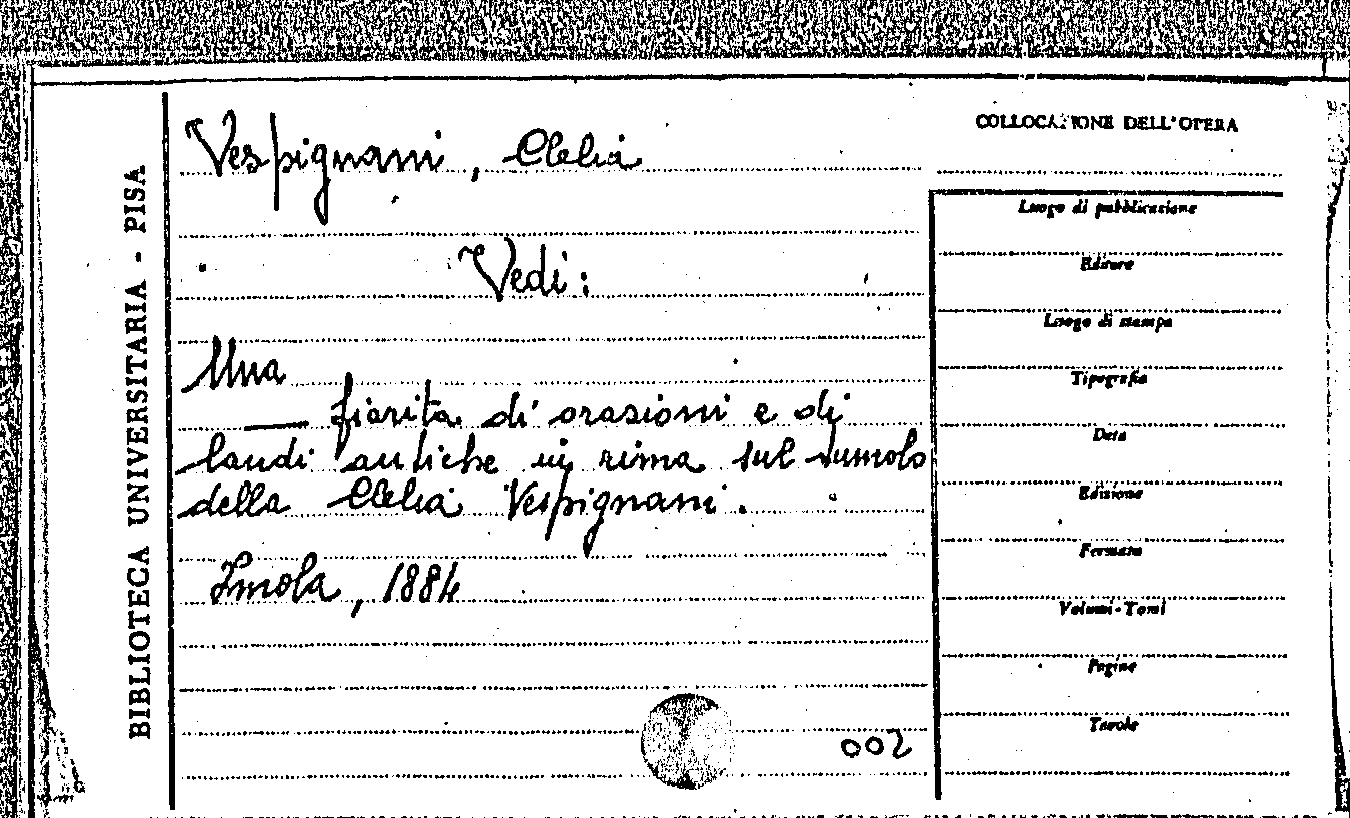 BIBLIOTECA UNIVERSITARIA - PISA
Vespignani, Clelia
Vedi:
Una
fiorita di orazioni e di
laudi antiche in rima sul tumolo
della Clelia Vespignani.
Imola, 1884
002
COLLOCAZIONE DELL'OPERA
Luogo di pubblicazione
Editore
Luogo di stampa
Tipografia
Data
Edizione
Formato
Volumi-Tomi
Pagine
Tavole